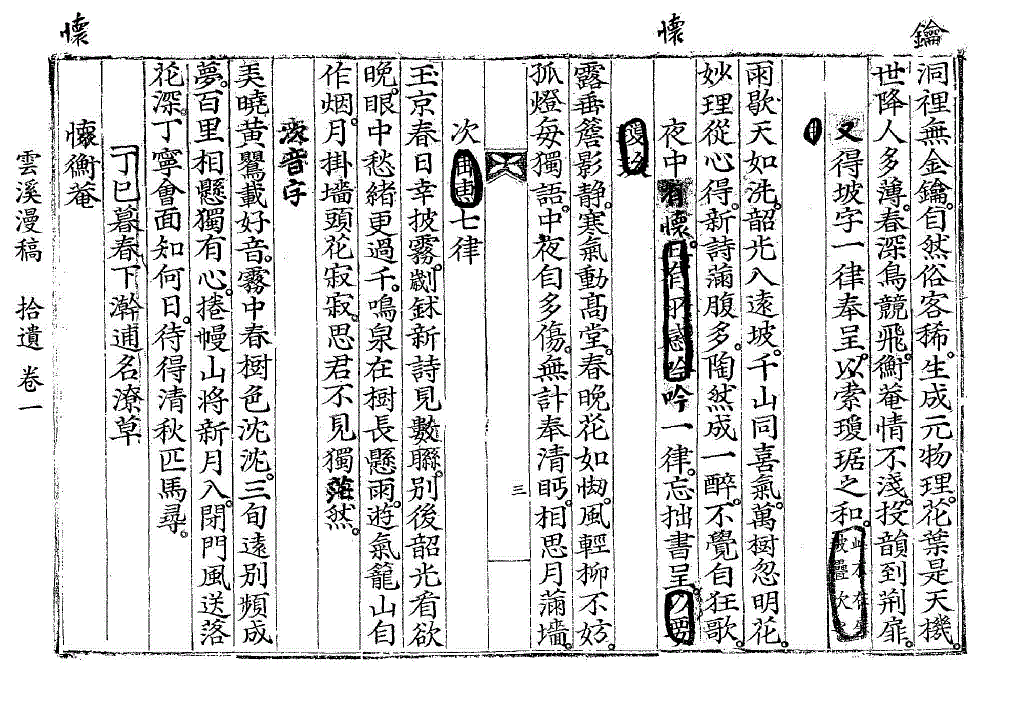 鑰
懷
懷
洞裡無金鑰。自然俗客稀。生成元物理。花葉是天機。
世降人多薄。春深鳥競飛。衡菴情不淺。投韻到荆扉。
又得坡字一律奉呈。以索瓊琚之和。
雨歇天如洗。韶光入遠坡。千山同喜氣。萬樹忽明花。
妙理從心得。新詩滿腹多。陶然成一醉。不覺自狂歌。
夜中有懷吟一律。忘拙書呈。
露垂簷影静。寒氣動髙堂。春晚花如惚。風輕柳不妨。
孤燈每獨語。中夜自多傷。無計奉清眄。相思月滿墻。
三
次七律
玉京春日幸披霧。劌鉥新詩見數聯。别後韶光看欲
晩。眼中愁緒更過千。鳴泉在樹長懸雨。遊氣籠山自
作烟。月掛墻頭花寂寂。思君不見獨茫然。
次音字
美曉黄鸎載好音。霧中春樹色沈沈。三旬遠别頻成
夢。百里相懸獨有心。捲幔山將新月入。閉門風送落
花深。丁寧會面知何日。待得清秋匹馬尋。
丁巳暮春下澣逋名潦草
懷衡菴
雲溪漫稿 拾遺 卷一